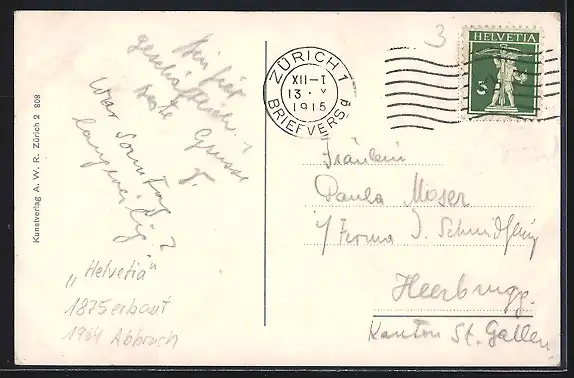 Kunstverlag A. W. R. Zürich 2 808
Bin hier
geschäftlich.
beste Grüsse
War Sonntag
langweilig?
„Helvetia"
1875 erbaut
1964 Abbruch
ZÜRICH 1
XII-1
13. V
1915
BRIEFVERS.
3
HELVETIA
5
Fräulein
Paula Moser
Firma J. Schmidheiny
Heerbrugg.
Kanton St. Gallen